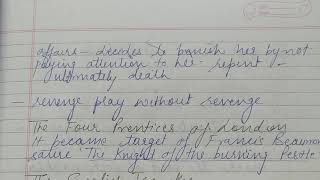 affairs - decides to banish her by not
paying attention to her - repent -
ultimately death
- revenge play without revenge
The Four Prentices of London
It became target of Francis Beaumon
satire 'The Knight of the burning Pestle
The